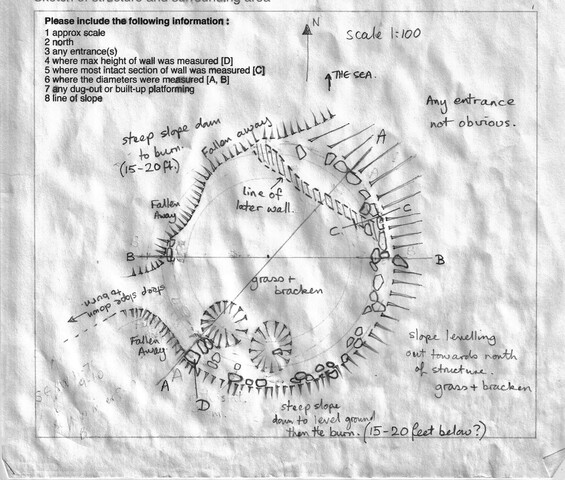 Sketch of structure and surrounding area
Please include the following information :
1 approx scale
2 north
3 any entrance(s)
4 where max height of wall was measured [D]
5 where most intact section of wall was measured [C]
6 where the diameters were measured [A, B]
7 any dug-out or built-up platforming
8 line of slope
N
scale 1:100
THE SEA.
Any entrance
not obvious.
steep slope down
to burn.
(15-20 ft.)
Fallen away
A
Fallen
Away
line of
later wall.
C
C
B
B
grass +
bracken
steep slope down
to burn.
Fallen
Away
A
D
slope levelling
out towards north
of structure.
grass + bracken
steep slope
down to level ground
then the burn. (15-20 feet below?)